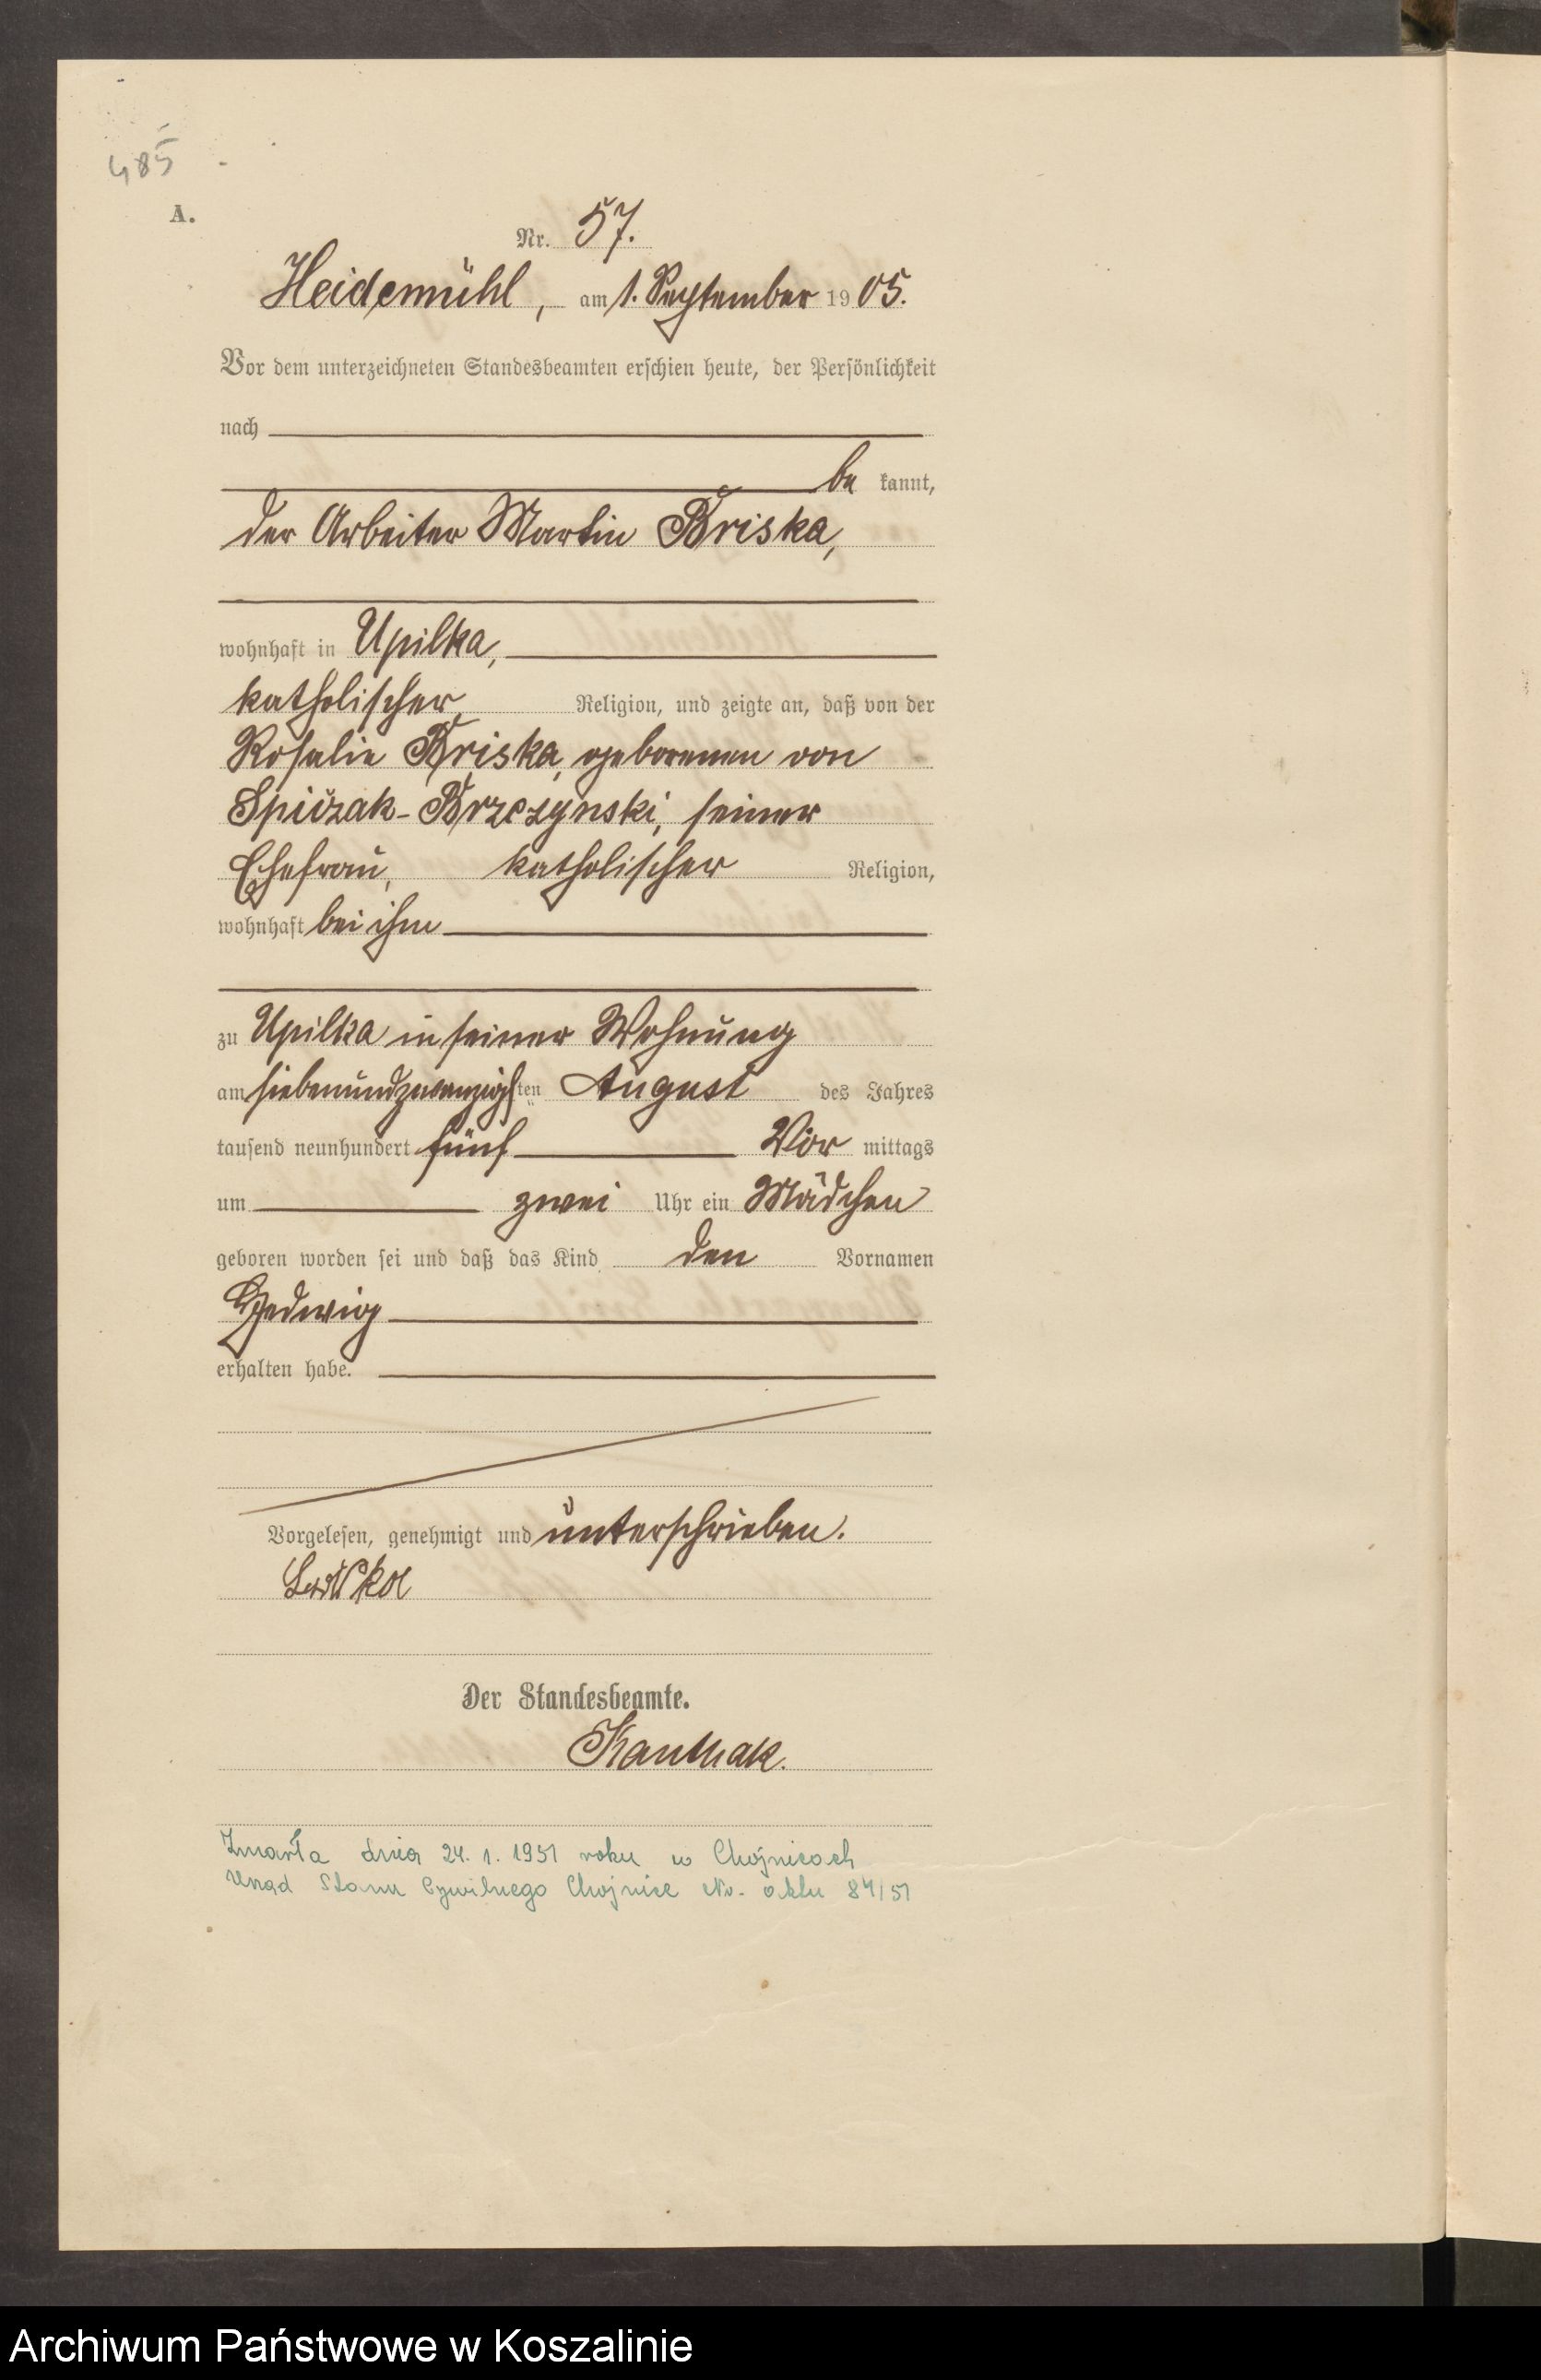 485
A.
Nr. 57.
Heidemühl, am 1. September 1905.
Vor dem unterzeichneten Standesbeamten erschien heute, der Persönlichkeit
nach
be kannt,
der Arbeiter Martin Briska,
wohnhaft in Upilka,
katholischer Religion, und zeigte an, daß von der
Rosalie Briska, geborenen von
Spiczak-Brzezynski, seiner
Ehefrau, katholischer Religion,
wohnhaft bei ihm
zu Upilka in seiner Wohnung
am siebenundzwanzigsten August des Jahres
tausend neunhundert fünf Vor mittags
um zwei Uhr ein Mädchen
geboren worden sei und daß das Kind den Vornamen
Hedwig
erhalten habe.
Vorgelesen, genehmigt und unterschrieben.
Der Standesbeamte.
Zmarła dnia 24. 1. 1951 roku w Chojnicach
Urząd Stanu Cywilnego Chojnice Nr. aktu 84/51
Archiwum Państwowe w Koszalinie